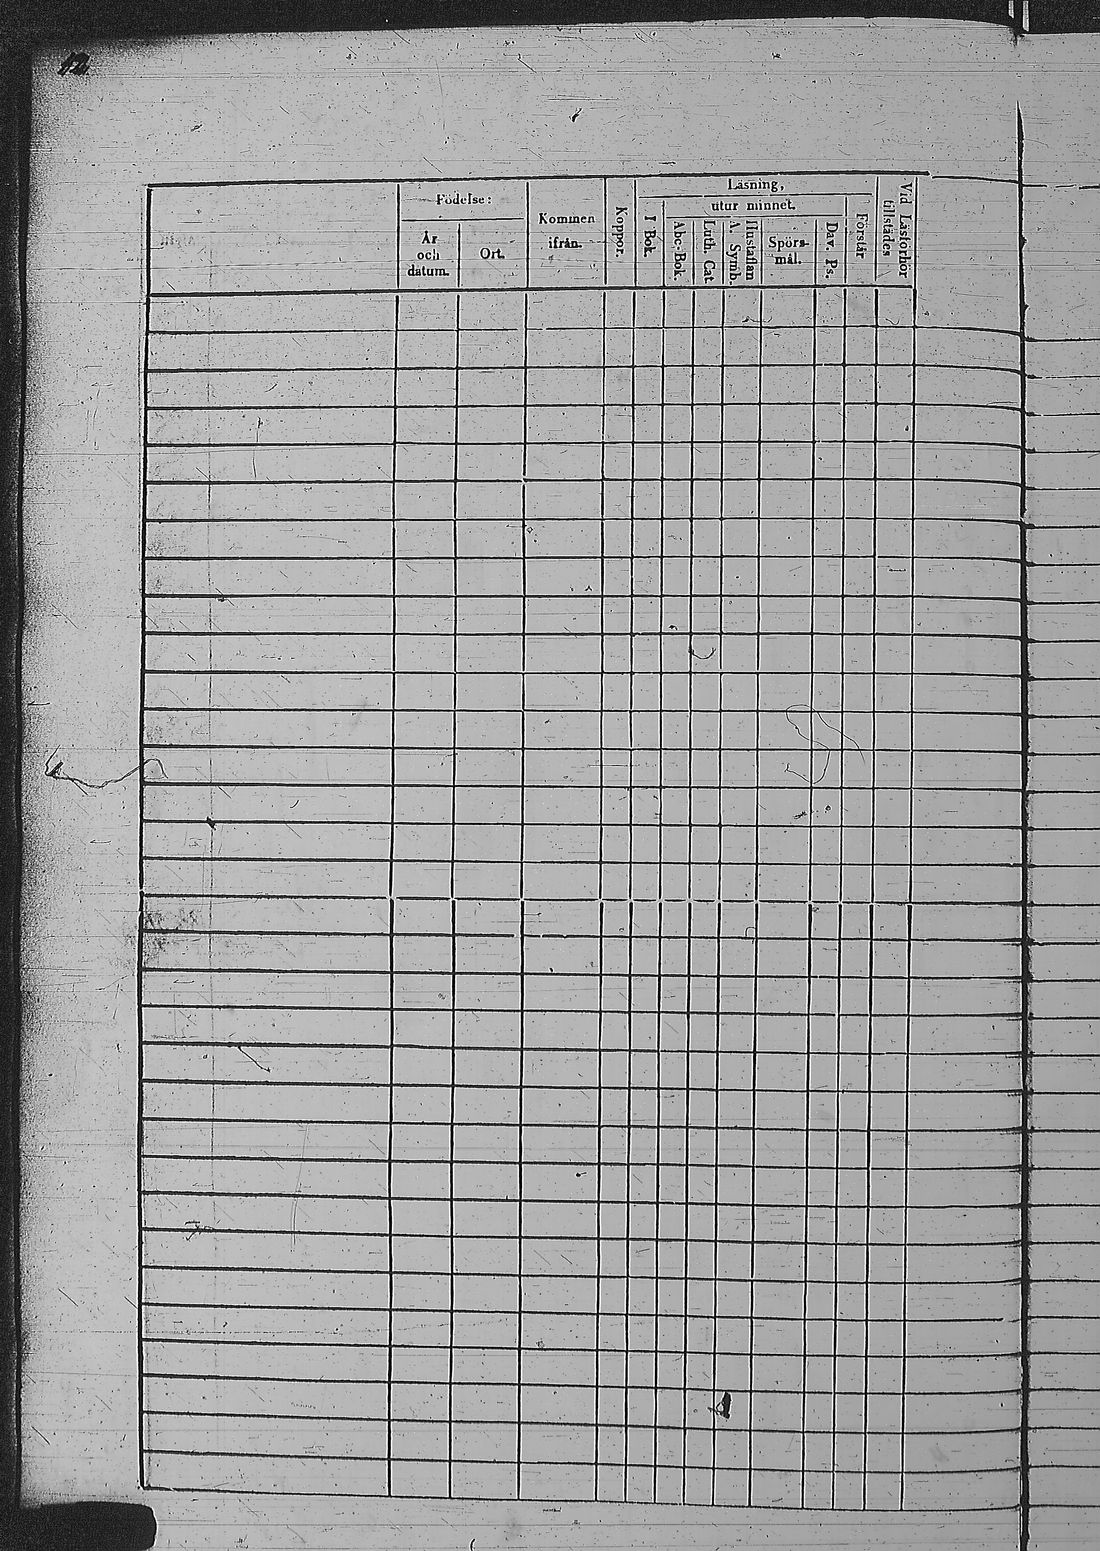 12
Födelse:
År
och
datum.
Ort.
Kommen
ifrån.
Koppor.
Läsning,
I Bok.
utur minnet.
Abc-Bok.
Luth. Cat
A. Symb.
Hustaflan
Spörs-
mål.
Dav. Ps.
Förstår
Vid Läsförhör
tillstädes